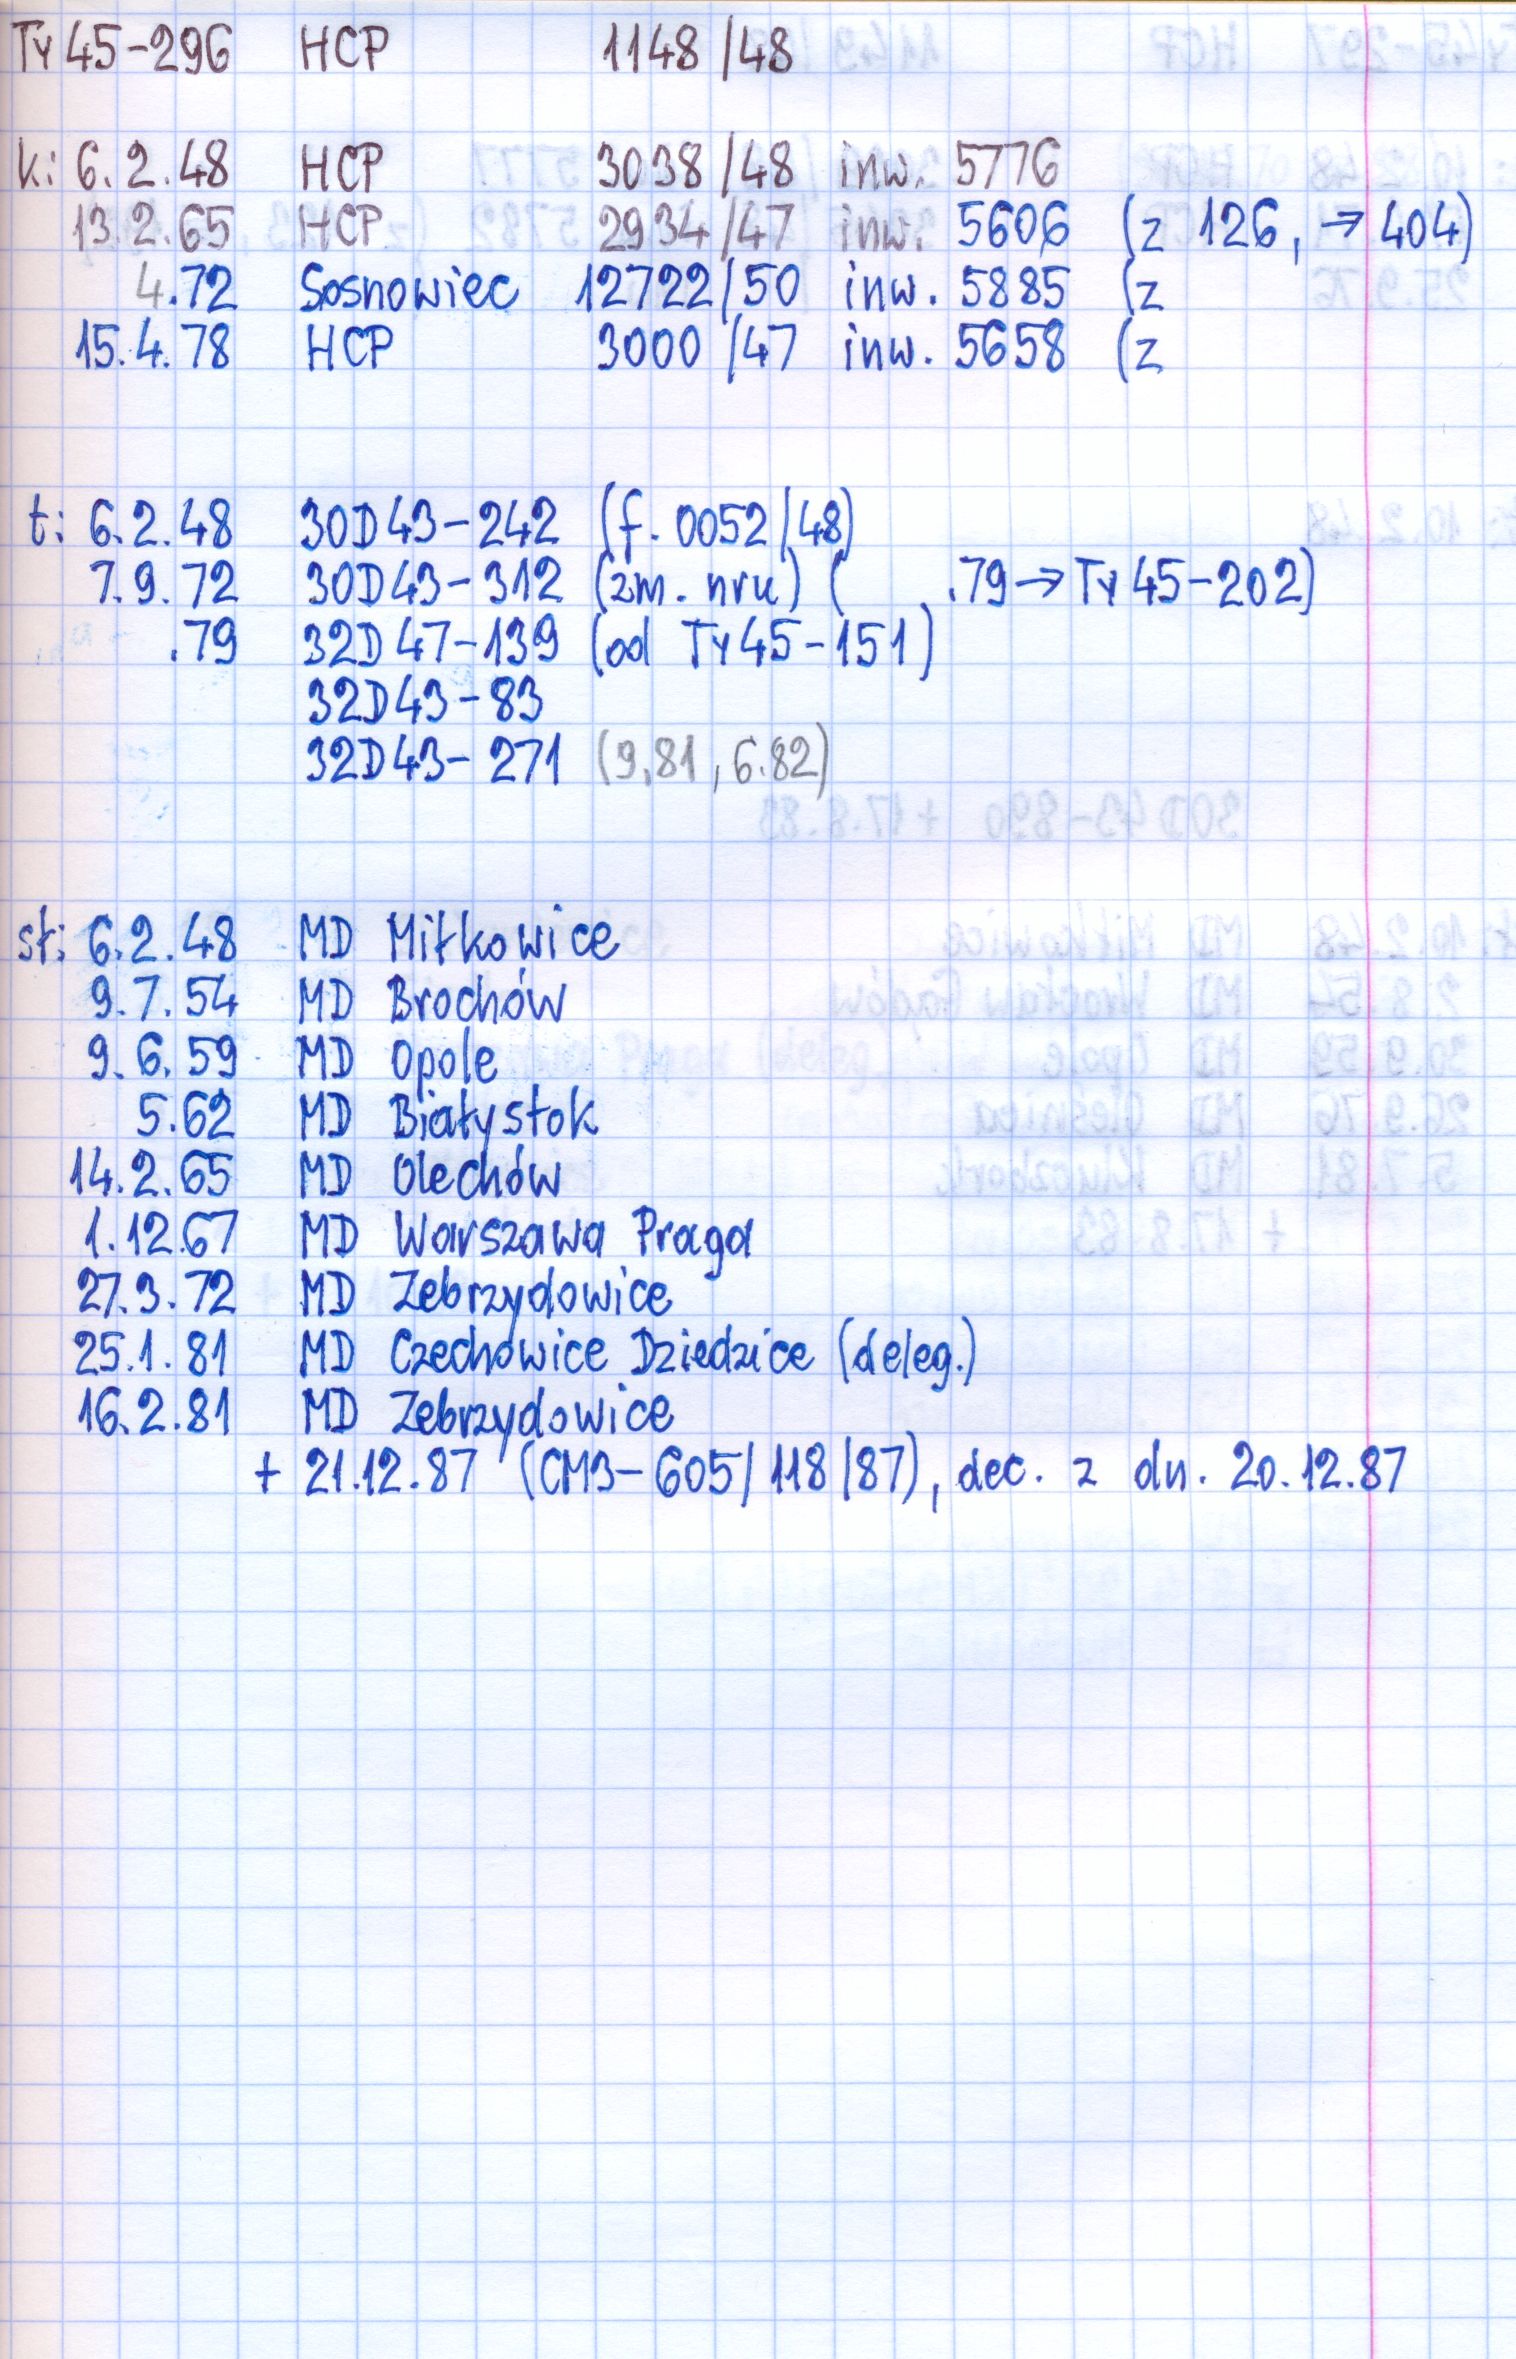 Ty45-296 HCP 1148/48
k: 6.2.48 HCP 3038/48 inw. 5776
13.2.65 HCP 2934/47 inw. 5606 (z 126, → 404)
4.72 Sosnowiec 12722/50 inw. 5885 (z
15.4.78 HCP 3000/47 inw. 5658 (z
t: 6.2.48 30D43-242 (f. 0052/48)
7.9.72 30D43-312 (zm. nru) ( .79→Ty45-202)
.79 32D47-139 (od Ty45-151)
32D43-83
32D43-271 (9.81, 6.82)
st: 6.2.48 MD Miłkowice
9.7.54 MD Brochów
9.6.59 MD Opole
5.62 MD Białystok
14.2.65 MD Olechów
1.12.67 MD Warszawa Praga
27.3.72 MD Zebrzydowice
25.1.81 MD Czechowice Dziedzice (deleg.)
16.2.81 MD Zebrzydowice
+ 21.12.87 (CM3-605/118/87), dec. z dn. 20.12.87